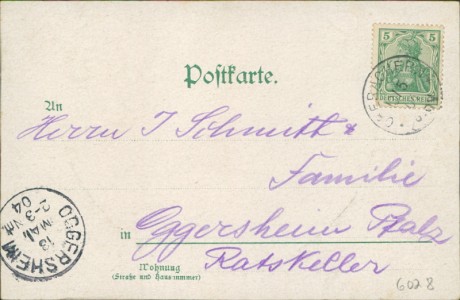 5
DEUTSCHES REICH
Postkarte.
An
Herrn J Schmitt &
Familie
in Oggersheim Pfalz
Ratskeller
Wohnung
(Straße und Hausnummer)
OGGERSHEIM
13 MAI
2-3 Nm.
04
6028